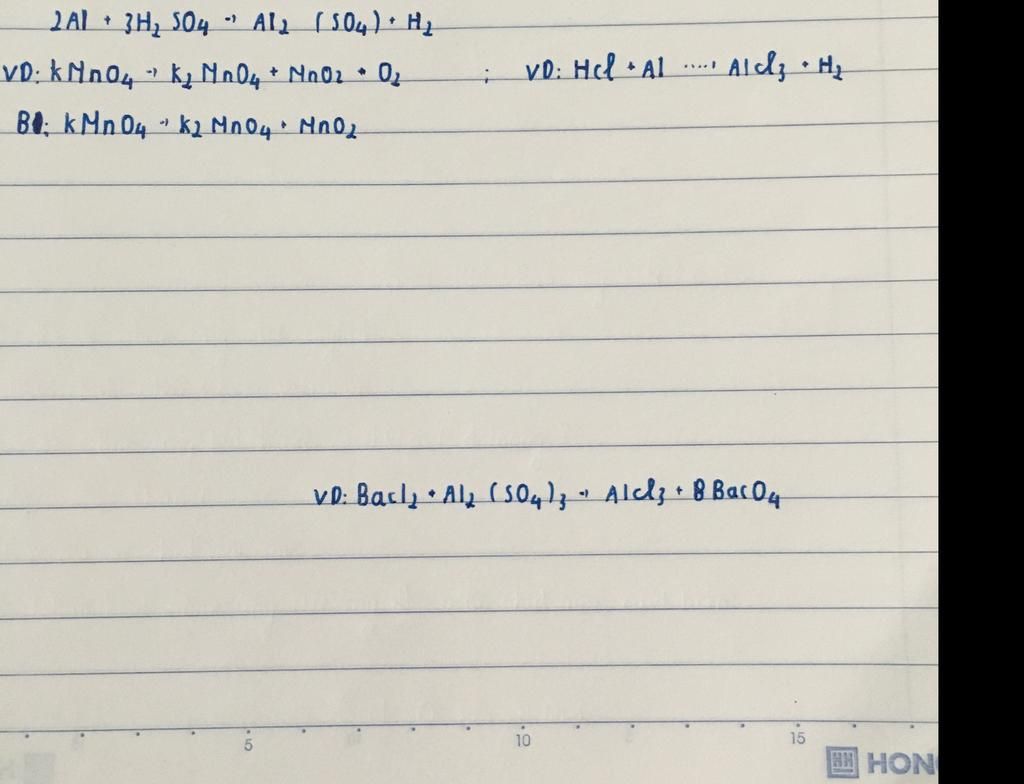 2Al + 3H2 SO4 → Al2 (SO4) + H2
VD: kMnO4 → k2 MnO4 + MnO2 + O2 ; VD: Hcl + Al ....→ Alcl3 + H2
B1: kMnO4 → k2 MnO4 + MnO2
VD: Bacl2 + Al2 (SO4)3 → Alcl3 + 8 BacO4
5 10 15
HH HON